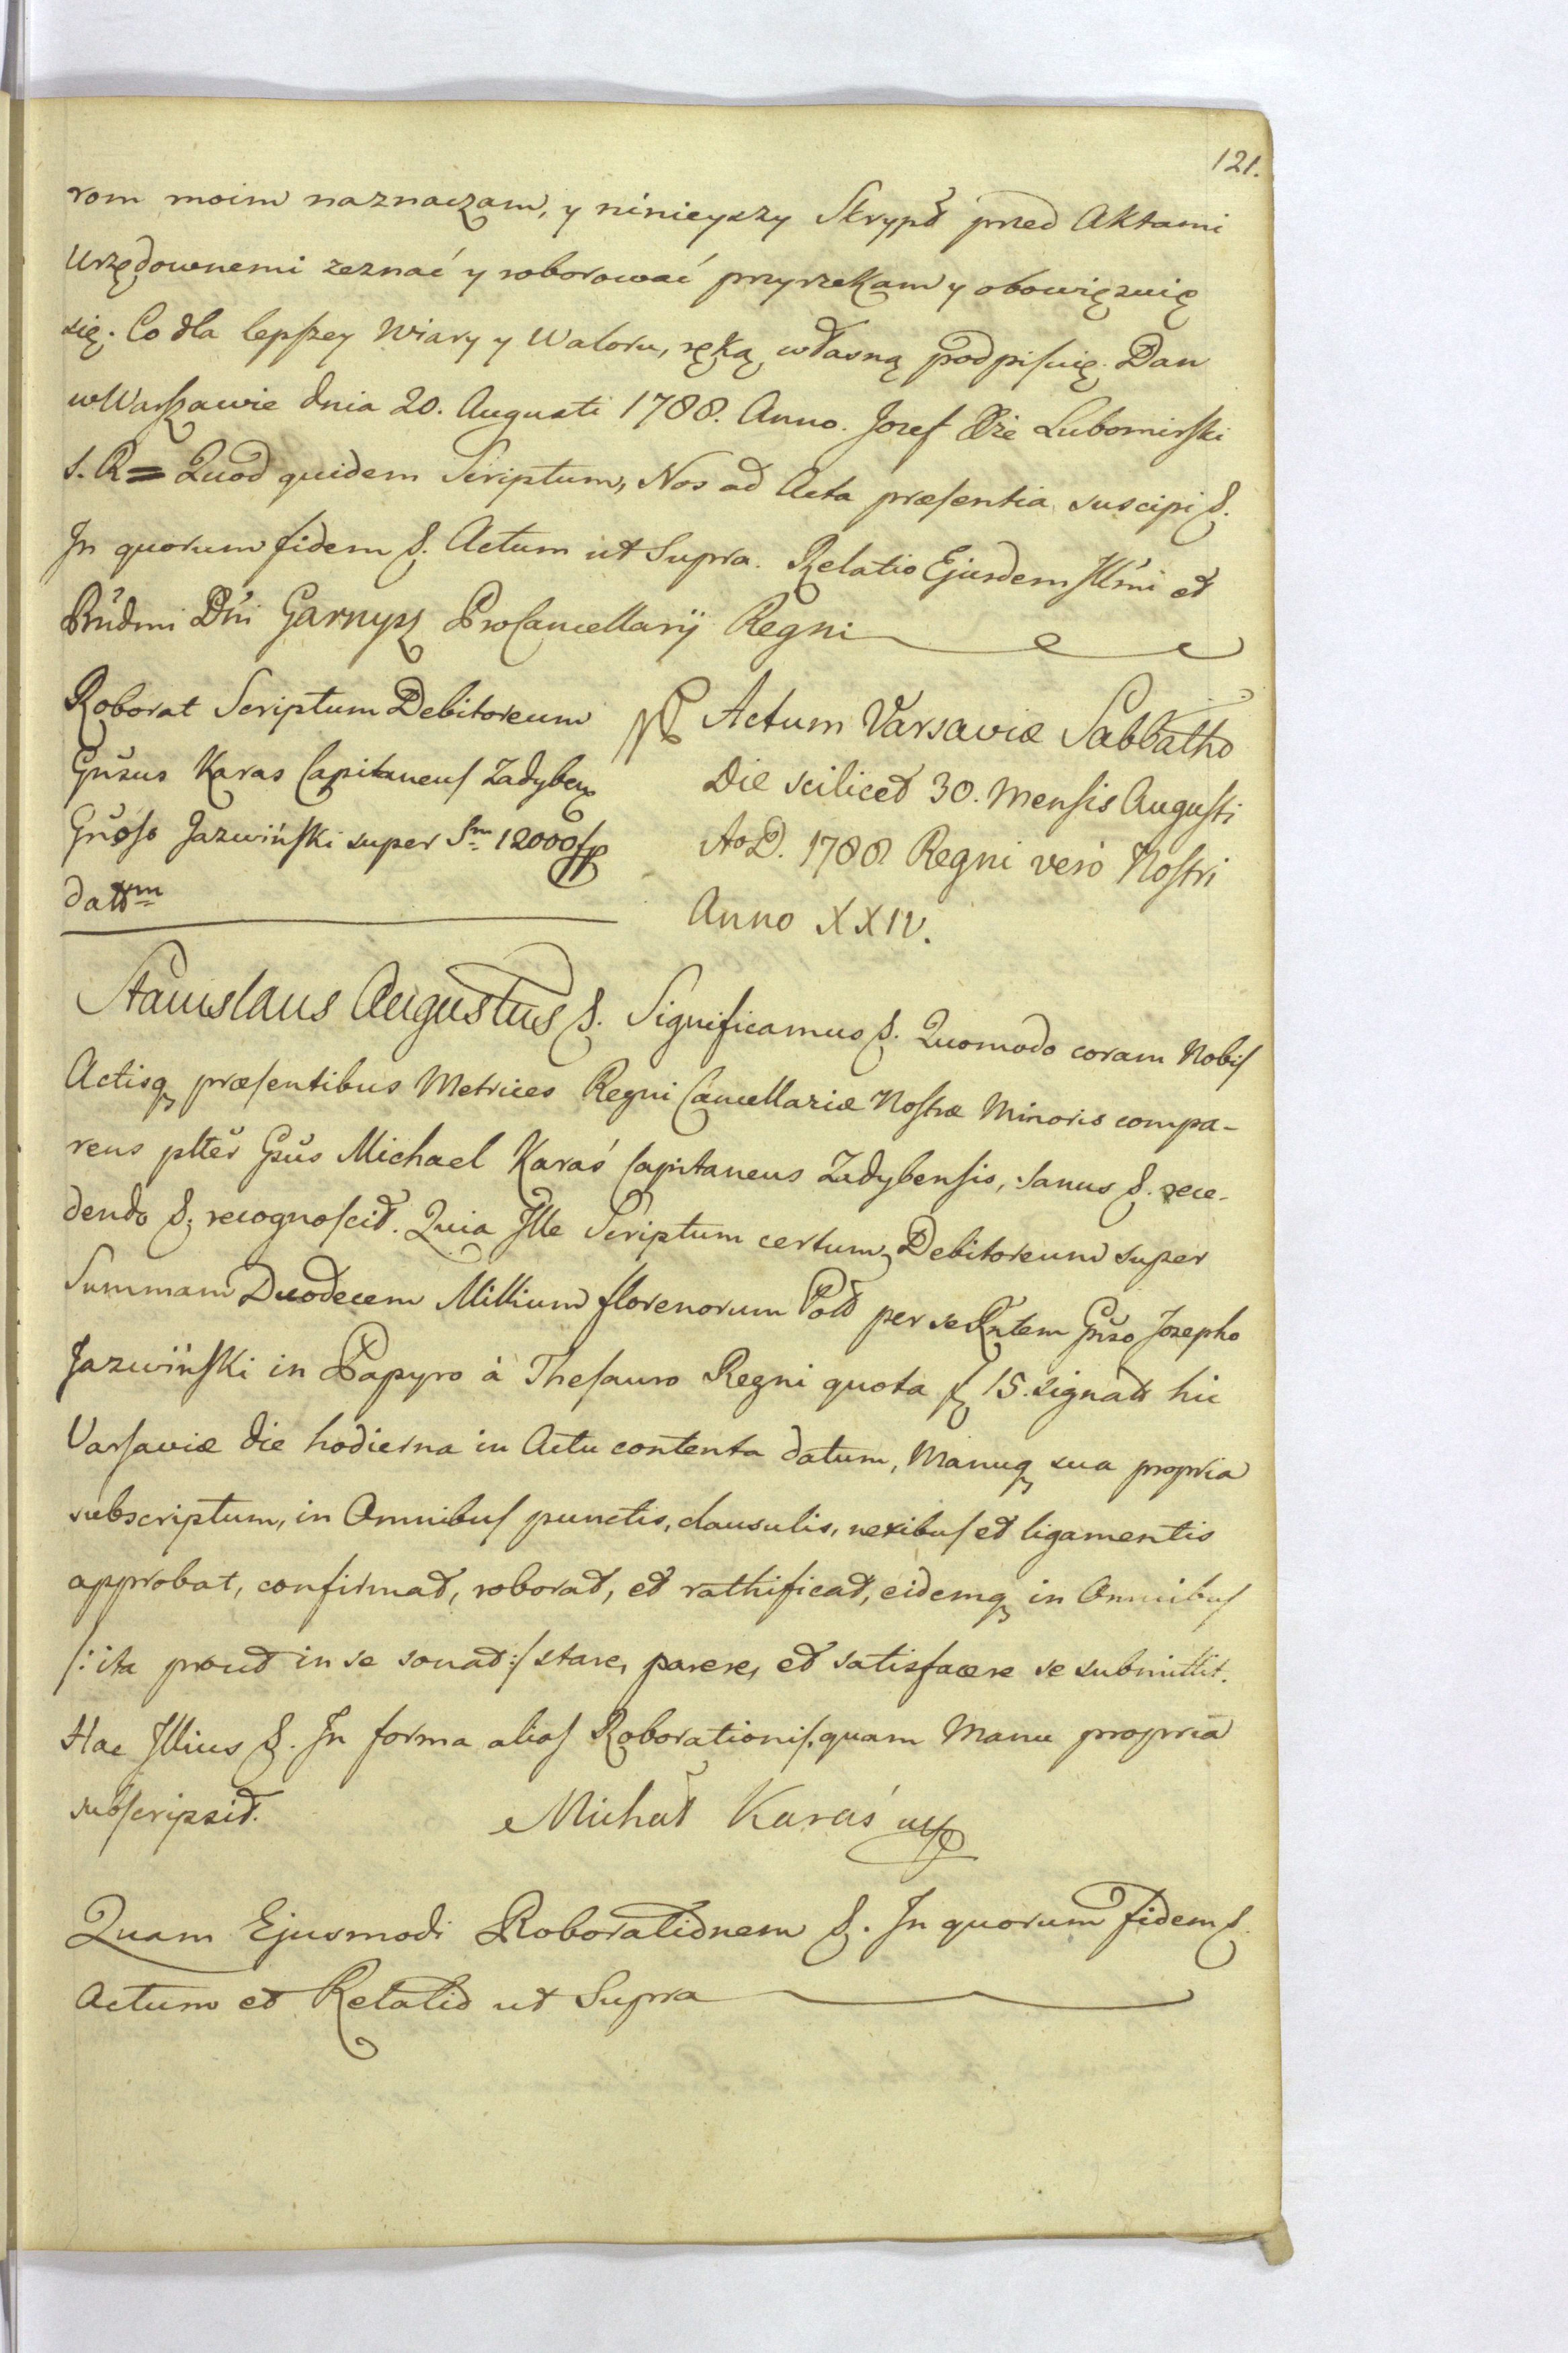 121.
rom moim naznaczam, y ninieyszy Skrypt przed Aktami
Urzędownemi zeznać y roborować przyrzekam y obowięzuię
się. Co dla lepſzey Wiary y Waloru, ręką własną podpiſuię. Dan
w Warſzawie dnia 20. Augusti 1788. Anno. Jozef Xże Lubomirſki
S. R = Quod quidem Scriptum, Nos ad Acta præſentia suscipi &.
In quorum fidem &. Actum ut Supra. Relatio Ejusdem Illmi et
Rndmi Dni Garnysz ProCancellarij Regni
Roborat Scriptum Debitoreum
Gnsus Karas Capitaneuſ Zadyben
Gnoſo Jazwińſki super Sm 12000 fp
dattm
Actum Varsaviæ Sabbatho
Die scilicet 30. Menſis Auguſti
AoD. 1788 Regni verò Noſtri
Anno XXIV.
Stanislaus Augustus &. Significamus &. Quomodo coram Nobiſ
Actisq præſentibus Metrices Regni Cancellariæ Noſtræ Minoris compa-
rens plter Gsus Michael Karaś Capitaneus Zadybenſis, sanus &. rece-
dendo &. recognoſcit. Quia Ille Scriptum certum Debitoreum super
Summam Duodecem Millium florenorum Poll per se Rntem Gnso Josepho
Jazwińſki in Papyro à Theſauro Regni quota f 15. signatt hic
Varſaviæ die hodierna in Actu contenta datum, Manuq sua propria
subscriptum, in Omnibuſ punctis, clausulis, nexibuſ et ligamentis
approbat, confirmat, roborat, et rathificat, eidemq in Omnibuſ
/: ita prout in se sonat :/ stare, parere, et satisfacere se submittit.
Hac Illius &. In forma alioſ Roborationiſ, quam Manu propria
subſcripsit.
Michał Karaś mp
Quam Ejusmodi Roborationem &. In quorum fidem &.
Actum et Relatio ut Supra